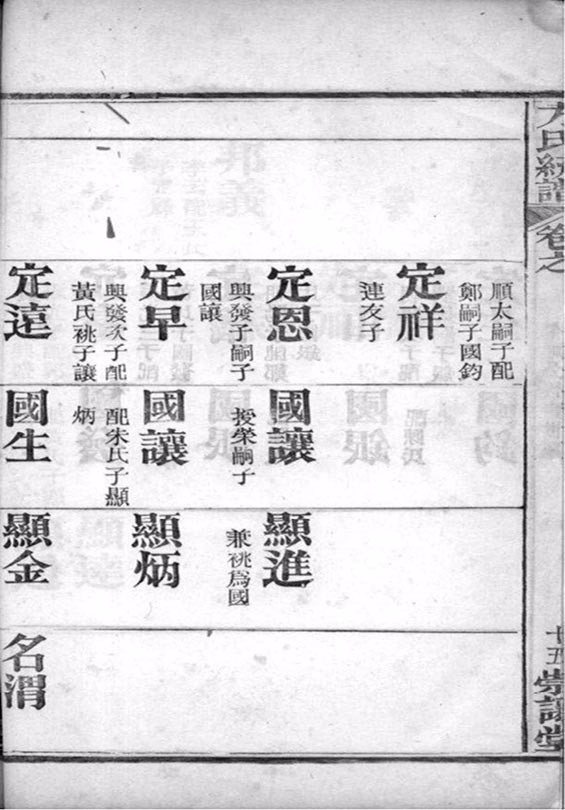 氏統譜
卷之
十五
崇讓堂
順太嗣子配
鄭嗣子國鈞
定祥
連友子
定恩
興發子嗣子
國讓
定早
興發次子配
黃氏祧子讓
定遠
國讓
授榮嗣子
國讓
配朱氏子顯
炳
國生
顯進
兼祧爲國
顯炳
顯金
名渭